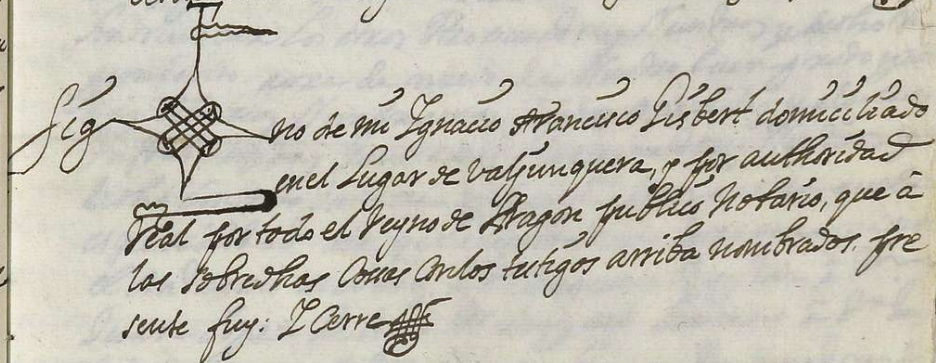 Sig no de mi Ygnacio Francisco Gisbert domiciliado
en el Lugar de Valjunquera, y por authoridad
real por todo el Reyno de Aragon publico Notario, que â
las sobredhas Cosas con los testigos arriba nombrados pre
sente fuy: Y Cerre